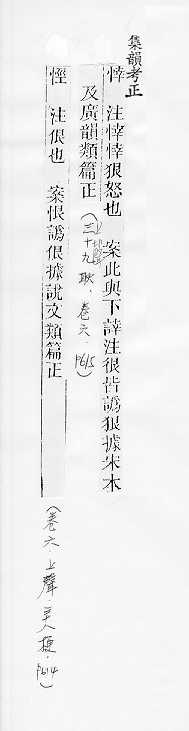 集韻考正
悻 注悻悻狠怒也 案此與下注很皆譌狠據宋本
及廣韻類篇正(三十九耿．卷六．P615)
注佷也 案恨譌佷據說文類篇正
(卷六．上聲．三八梗．P614)